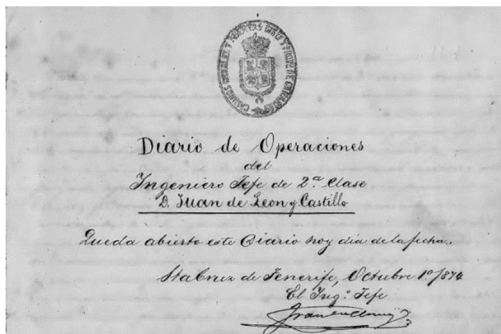 Diario de Operaciones
del
Ingeniero Jefe de 2.ª Clase
D. Juan de Leon y Castillo
Queda abierto este Diario hoy dia de la fecha.
Sta Cruz de Tenerife, Octubre 1º/874
El Ingº Jefe